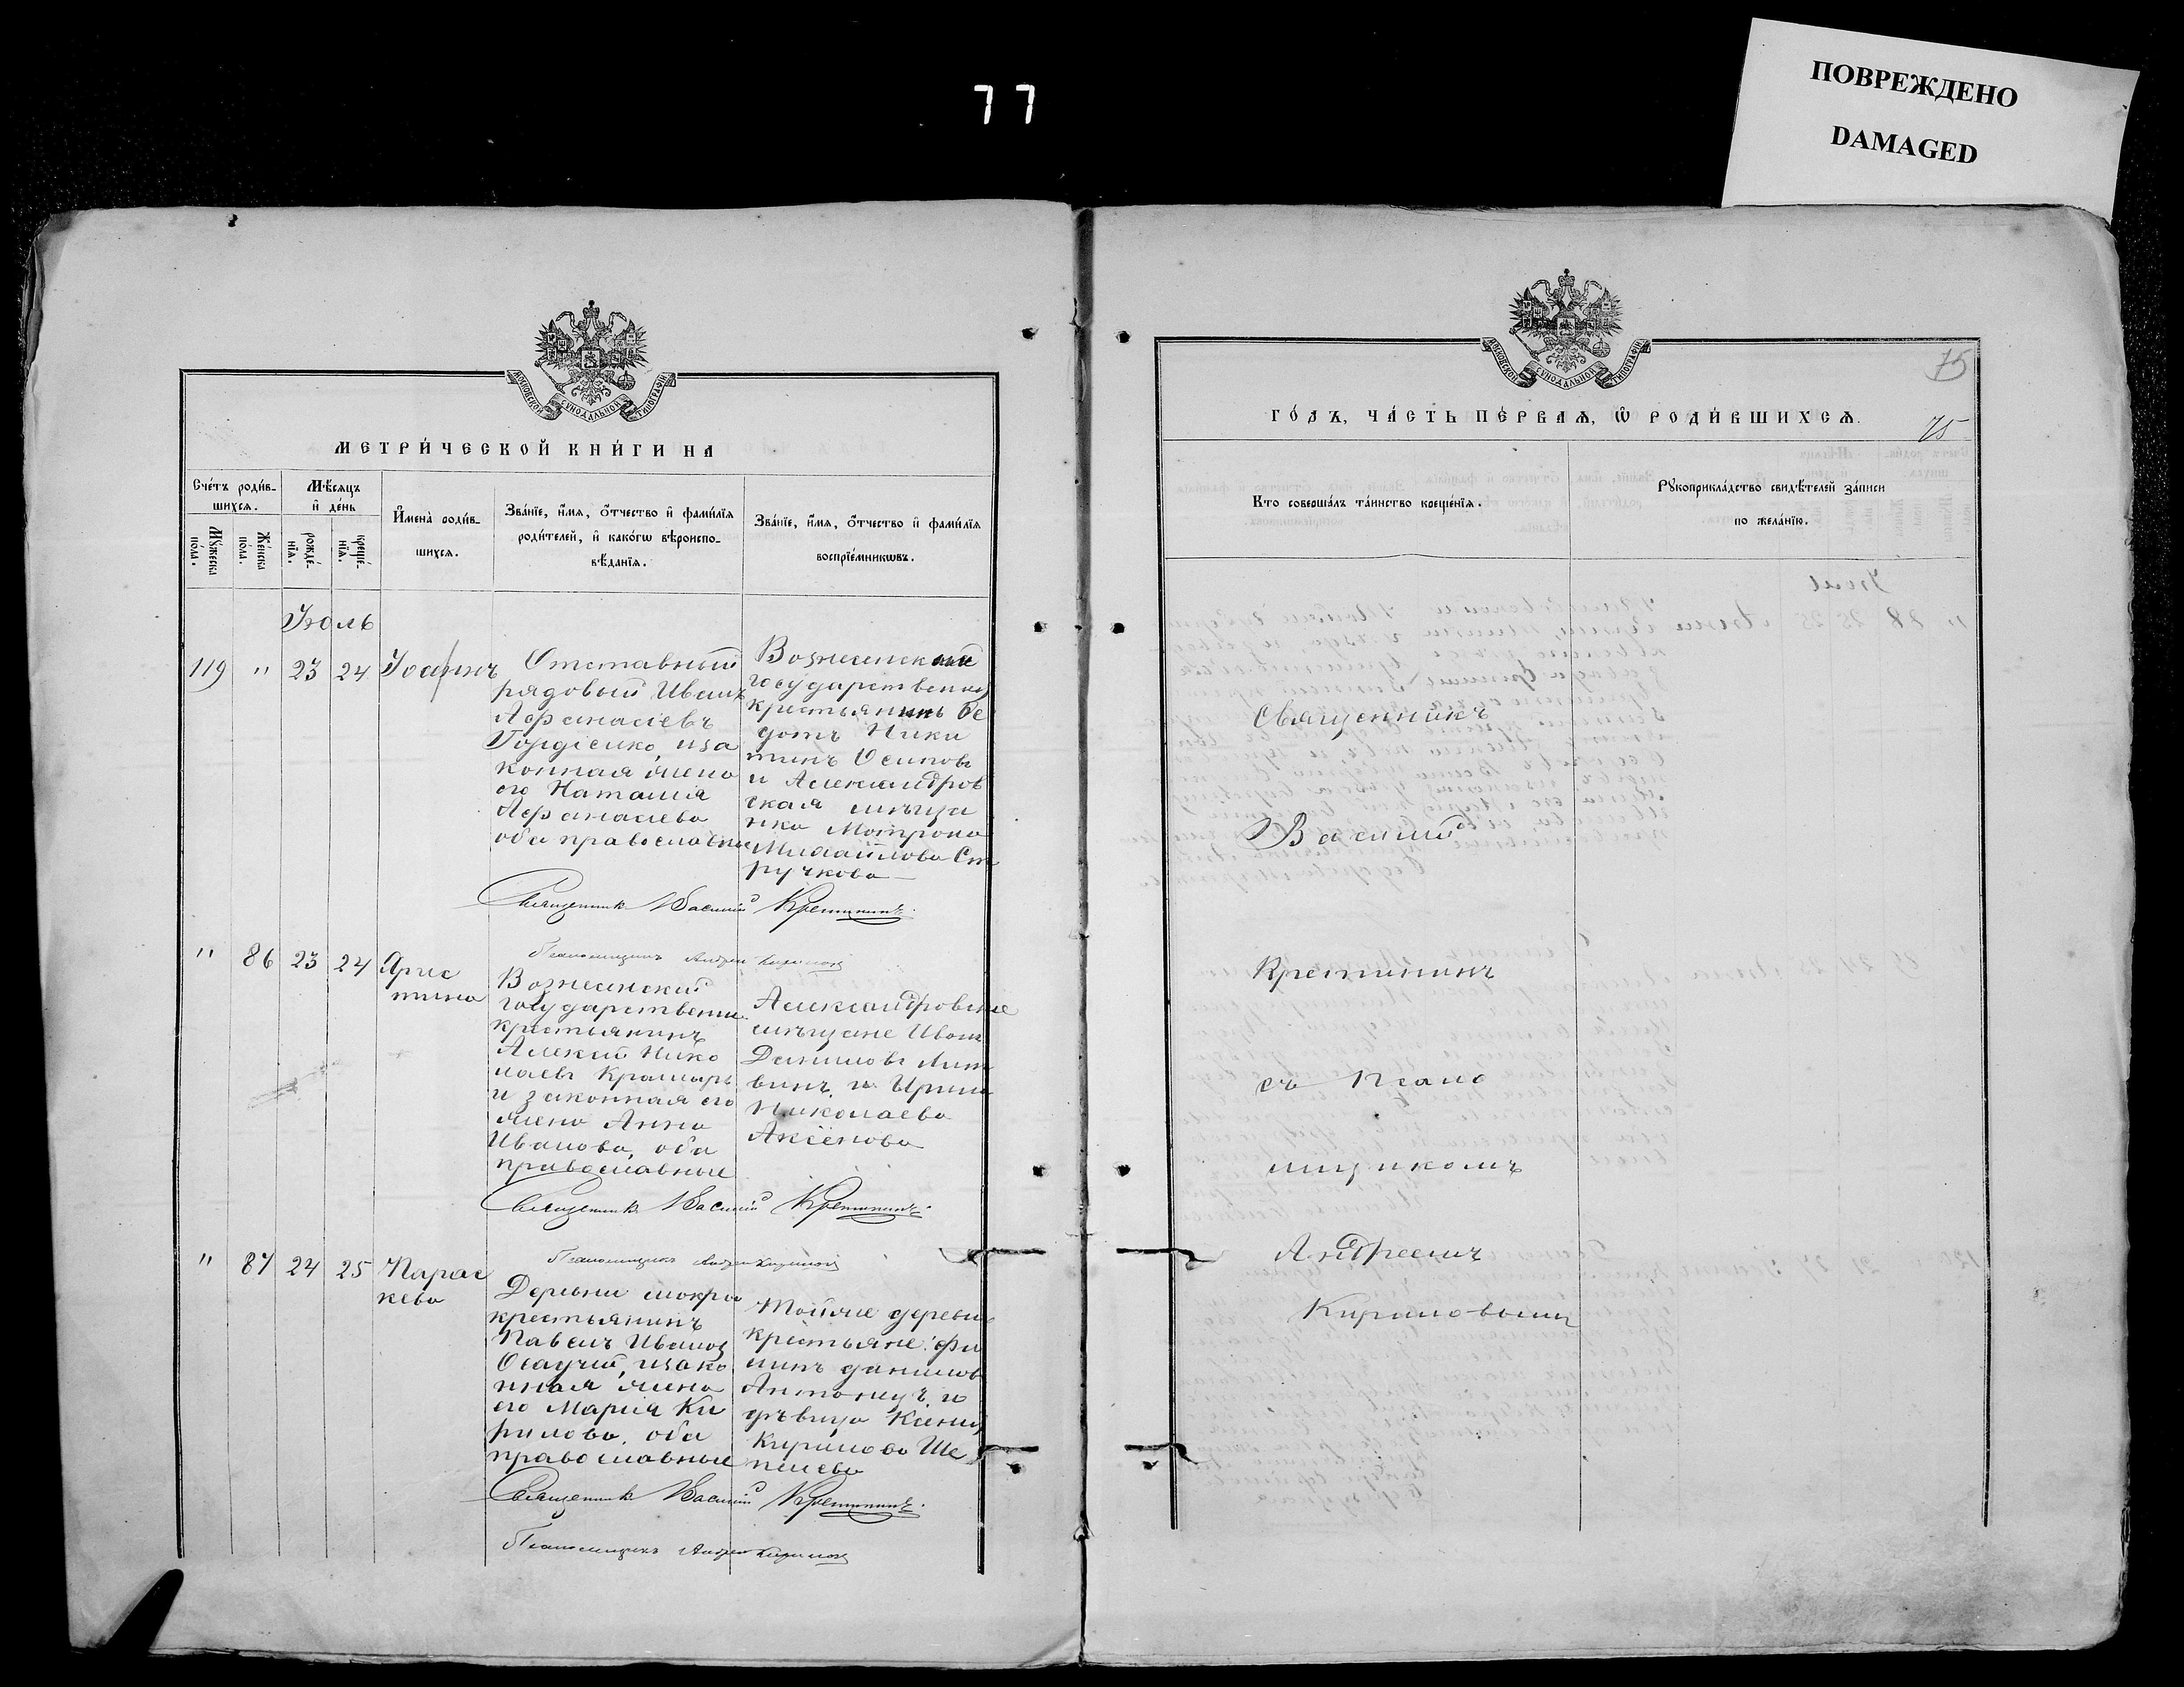 77
ПОВРЕЖДЕНО
DAMAGED
МОСКОВСКОЙ СѴНОДАЛЬНОЙ ТИПОГРАФІИ
МЕТРИ́ЧЕСКОЙ КНИ́ГИ НА
Сче́тъ роди́в-
шихсѧ.
Мѣ́сѧцъ
и҆ де́нь
Мꙋ́жеска
по́ла.
Же́нска
по́ла.
рожде́-
нїѧ.
креще́-
нїѧ.
И҆мена̀ роди́в-
шихсѧ.
Зва́нїе, и҆́мѧ, ѻ҆́тчество и҆ фами́лїѧ
роди́телей, и҆ како́гѡ вѣроиспо-
вѣ́данїѧ.
Зва́нїе, и҆́мѧ, ѻ҆́тчество и҆ фами́лїѧ
воспрїе́мникѡвъ.
Іюль
119 " 23 24 Іоаннъ
Отставный
рядовый Иванъ
Афанасіевъ
Гордіенко, иза
конная жена
его Наталія
Афанасіева
оба православные
Вознесенский
государственный
крестьянинъ Фе
дотъ Ники
тинъ Осиповъ
и Александров
ская мѣщан
ка Матрона
Михайлова Ст
ручкова
Священникъ Василій Кретининъ.
Псаломщикъ Андрей Кириловъ
" 86 23 24 Хрис
тина
Вознесенский
государственный
крестьянинъ
Алексій Нико
лаевъ Крамарь
и законная его
жена Анна
Иванова, оба
православные
Александровские
мѣщане Иванъ
Даниловъ Лит
винъ и Ирина
Николаева
Аксенова
Священникъ Василій Кретининъ.
Псаломщикъ Андрей Кириловъ
" 87 24 25 Парас
кева
Деревни мокрой
крестьянинъ
Павелъ Ивановъ
изако
нная жена
его Марія Ки
рилова, оба
православные
Тойже деревни
крестьяне: Фи
липъ Даниловъ
Антонецъ и
дѣвица Ксенія
Кирилова Ше
пелева
Священникъ Василій Кретининъ.
Псаломщикъ Андрей Кириловъ
МОСКОВСКОЙ СѴНОДАЛЬНОЙ ТИПОГРАФІИ
75
ГО́ДЪ, ЧА́СТЬ ПЕ́РВАѦ, Ѡ҆ РОДИ́ВШИХСѦ.
75
Кто̀ соверша́лъ та́инство креще́нїѧ.
Рꙋкоприкла́дство свидѣ́телей за́писи
по жела́нїю.
Священникъ
Василій
Кретининъ
съ Псало
мщикомъ
Андреемъ
Кириловымъ